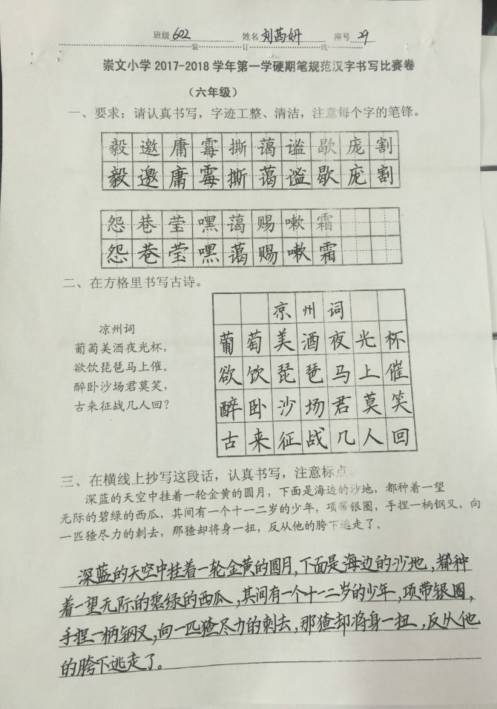 班级 602 姓名 刘茜妍 座号 29
装 订 线
崇文小学 2017-2018 学年第一学硬期笔规范汉字书写比赛卷
（六年级）
一、要求：请认真书写，字迹工整、清洁，注意每个字的笔锋。
毅 邀 庸 霉 撕 蔼 谧 歇 庞 割
毅 邀 庸 霉 撕 蔼 谧 歇 庞 割
怨 巷 莹 嘿 蔼 赐 嗽 霜
怨 巷 莹 嘿 蔼 赐 嗽 霜
二、在方格里书写古诗。
凉州词
葡萄美酒夜光杯，
欲饮琵琶马上催。
醉卧沙场君莫笑，
古来征战几人回？
凉 州 词
葡 萄 美 酒 夜 光 杯
欲 饮 琵 琶 马 上 催
醉 卧 沙 场 君 莫 笑
古 来 征 战 几 人 回
三、在横线上抄写这段话，认真书写，注意标点。
深蓝的天空中挂着一轮金黄的圆月，下面是海边的沙地，都种着一望
无际的碧绿的西瓜。其间有一个十一二岁的少年，项带银圈，手捏一柄钢叉，向
一匹猹尽力的刺去，那猹却将身一扭，反从他的胯下逃走了。
深蓝的天空中挂着一轮金黄的圆月，下面是海边的沙地，都种
着一望无际的碧绿的西瓜，其间有一个十一二岁的少年，项带银圈，
手捏一柄钢叉，向一匹猹尽力的刺去，那猹却将身一扭，反从他
的胯下逃走了。